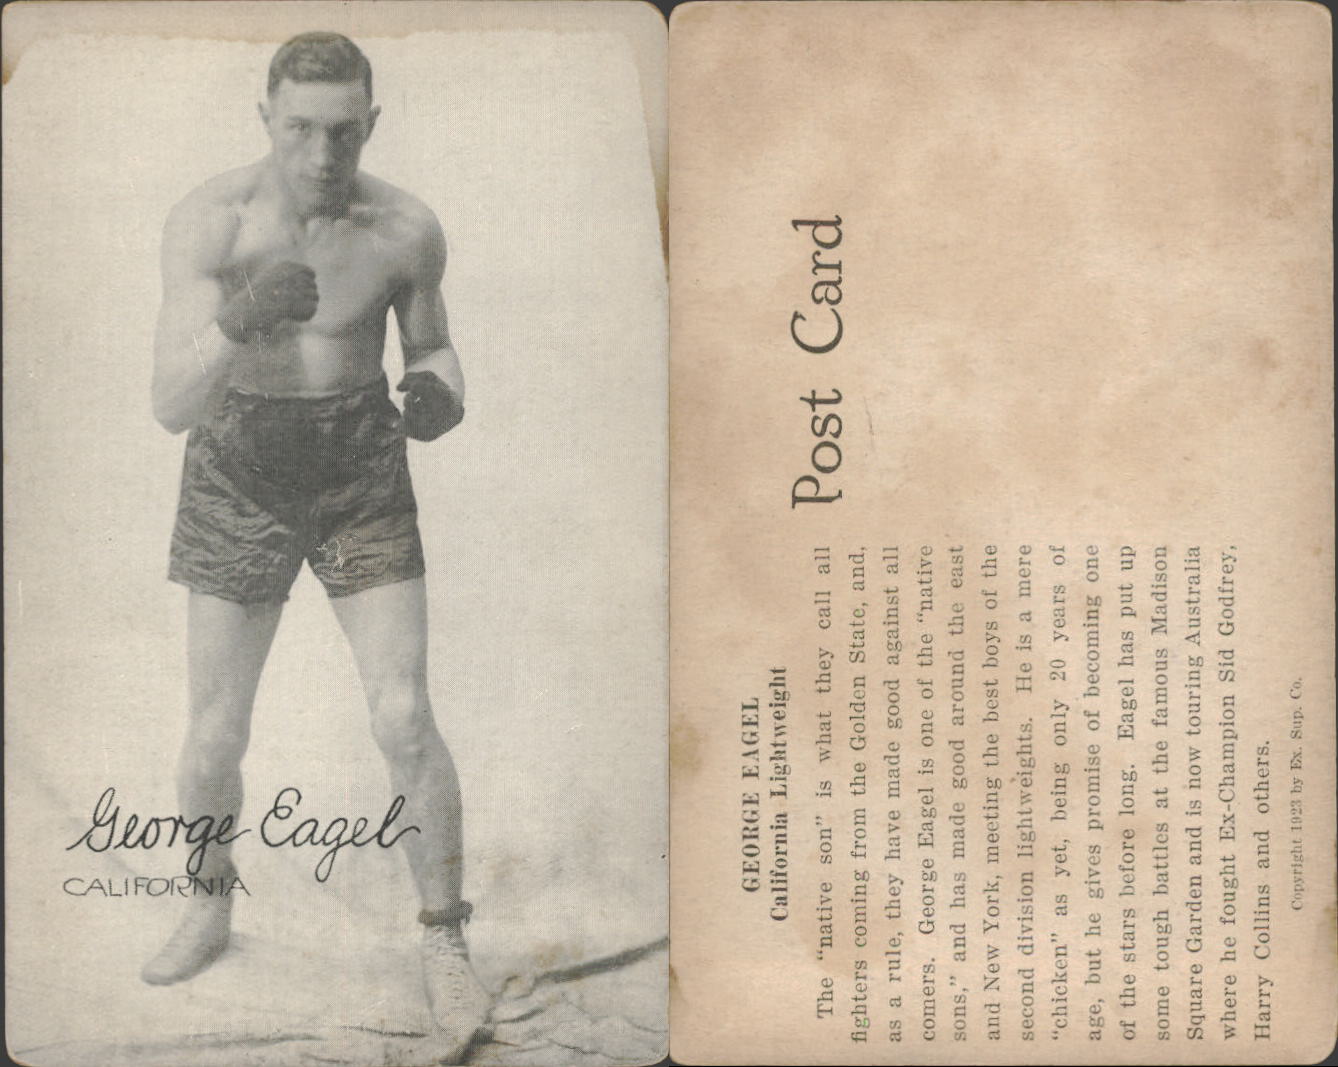 George Eagel
CALIFORNIA
GEORGE EAGEL
California Lightweight
The “native son” is what they call all
fighters coming from the Golden State, and,
as a rule, they have made good against all
comers. George Eagel is one of the “native
sons,” and has made good around the east
and New York, meeting the best boys of the
second division lightweights. He is a mere
“chicken” as yet, being only 20 years of
age, but he gives promise of becoming one
of the stars before long. Eagel has put up
some tough battles at the famous Madison
Square Garden and is now touring Australia
where he fought Ex-Champion Sid Godfrey,
Harry Collins and others.
Copyright 1923 by Ex. Sup. Co.
Post Card